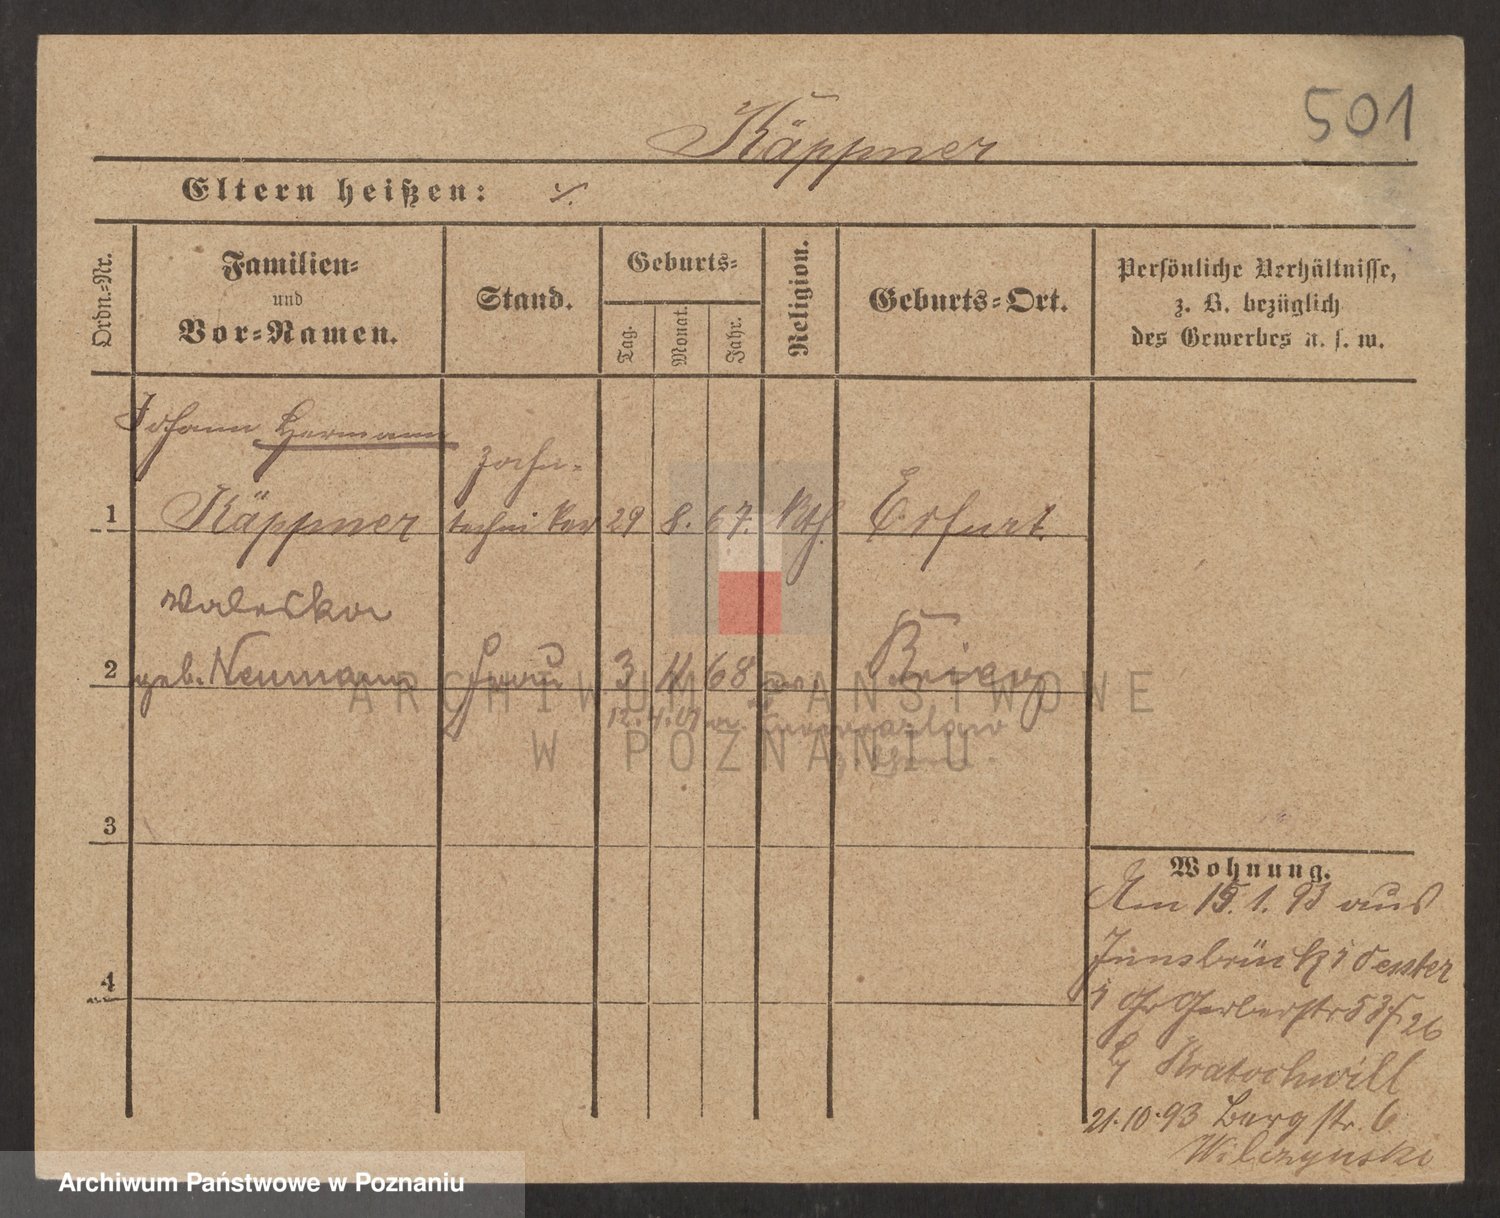 501
Käppner
Eltern heißen: ./.
Ordn.-Nr.
Familien-
und
Vor-Namen.
Stand.
Geburts-
Tag.
Monat.
Jahr.
Religion.
Geburts-Ort.
Persönliche Verhältnisse,
z. B. bezüglich
des Gewerbes u. s. w.
Johann Hermann
Zahn-
1 Käppner techniker 29 8. 67. Kth. Erfurt
Valeska
2 geb. Neumann Frau 3 4 68 Brieg
12.4.01 Inowrazlaw
3
4
Wohnung.
Am 15.1.93 aus
Innsbrück
Gr Gerberstr 53 26
Kratochwill
21.10.93 Bergstr. 6
Wilczynski
ARCHIWUM PAŃSTWOWE
W POZNANIU
Archiwum Państwowe w Poznaniu